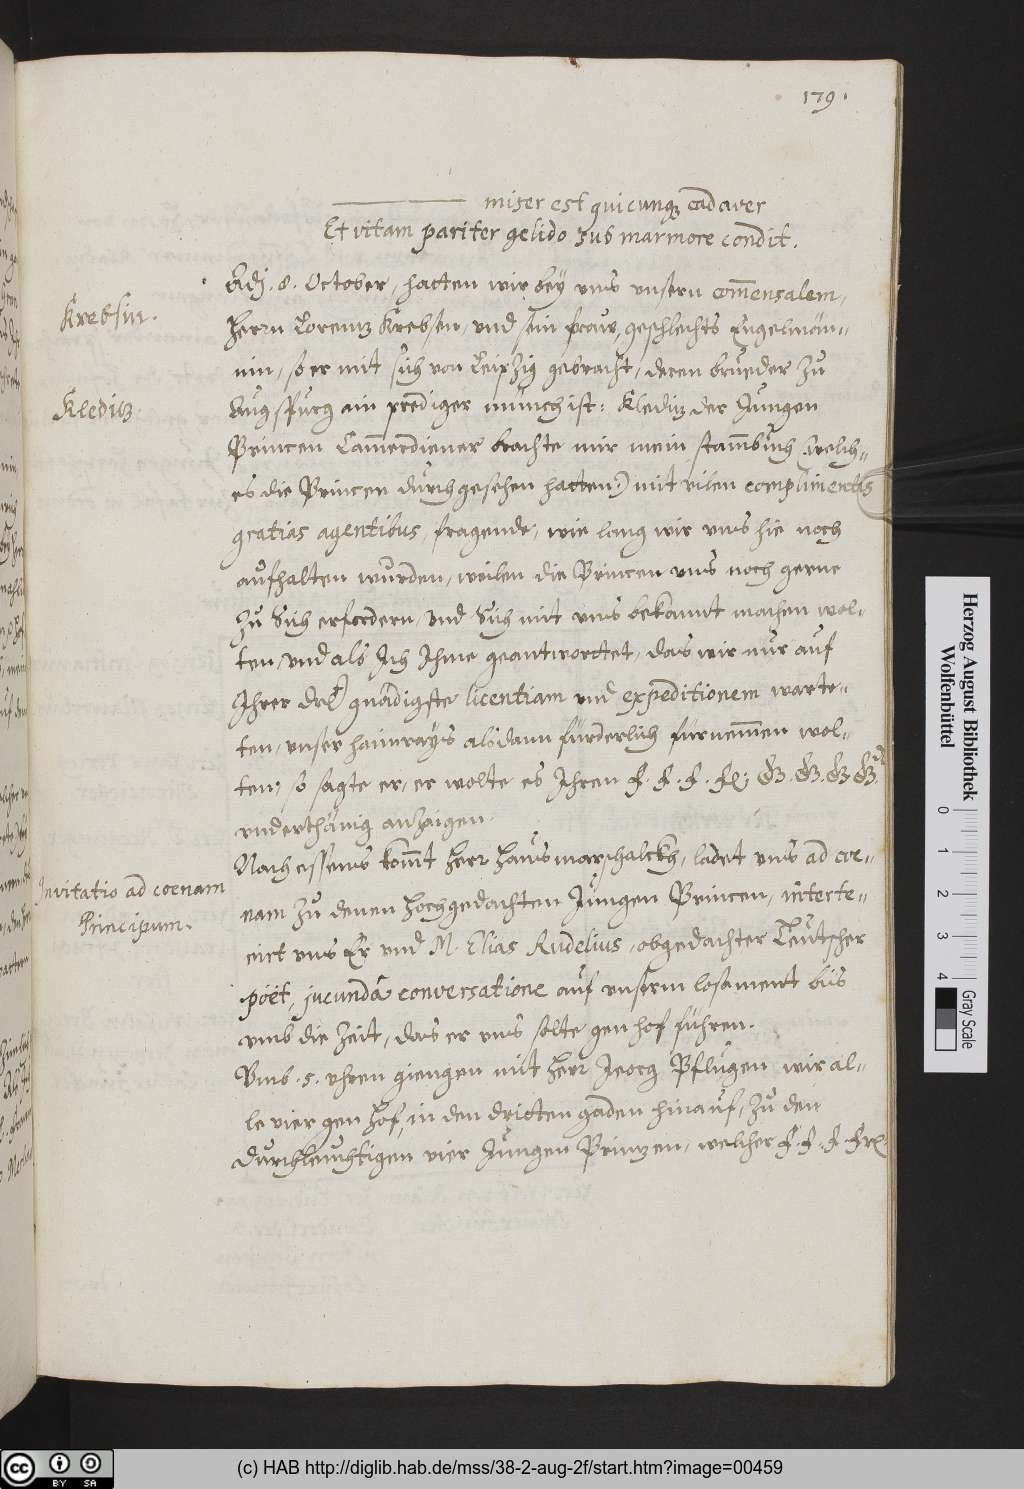 179.
miser est quicunq; cadaver
Et vitam pariter gelido sub marmore condit.
Adj. 8. October, hatten wir bey vns vnsern com̄ensalem,
Krebsin.
Herrn Lorentz Krebsen, vnd sein fraw, geschlechts Engelmän-
nin, so er mit sich von Leipzig gebracht, deren brueder zu
Kleditz.
Augspurg ain prediger münch ist: Kleditz der Jungen
Princen Cam̄erdiener brachte mir mein stam̄buch (welch-
es die Princen durchgesehen hatten) mit vilen complimentis
gratias agentibus, fragende, wie lang wir vns hie noch
aufhalten wurden, weilen die Princen vns noch gerne
zu Sich erfordern, vnd Sich mit vns bekannt machen wol-
ten, vnd als Ich Ihme geantworttet, das wir nur auf
Ihrer drl. gnädigste licentiam vnd expeditionem warte-
ten, vnser hainrays alsdann fürderlich fürnem̄en wol-
ten; so sagte er, er wolte es Ihren F. F. F. F.
vnderthänig anzaigen.
Nach essens kom̄t Herr Hausmarschalckh, ladet vns ad coe-
Invitatio ad coenam
Principum.
nam zu denen Hochgedachten Jungen Princen, interte-
nirt vns Er vnd M. Elias Rudelius, obgedachter Teutscher
poët, jucundâ conversatione auf vnserm losament bis
vmb die Zeit, das er vns solte gen hof führen.
Vmb .5. vhren giengen mit Herr Georg Pflugen wir al-
le vier gen Hof, in den dritten gaden hinauf, zu den
durchleuchtigen vier Jungen Printzen, welcher F. F. F.
Herzog August Bibliothek
Wolfenbüttel
0 1 2 3 4
Gray Scale
(c) HAB http://diglib.hab.de/mss/38-2-aug-2f/start.htm?image=00459
cc BY SA